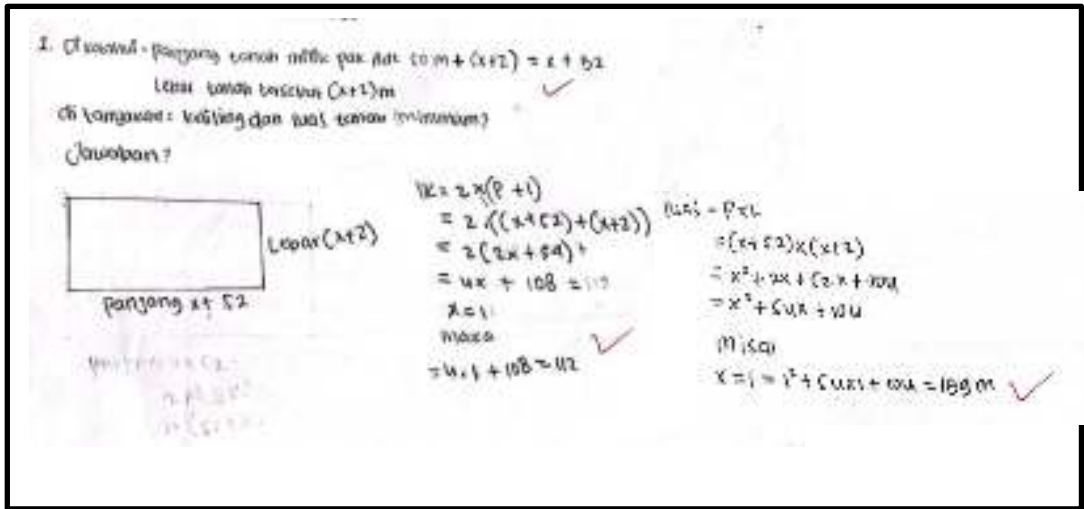 1. Diketahui = panjang tanah milik pak 50 m + (x+2) = x + 52
Lebar tanah tersebut (x+2)m
di tanyakan: keliling dan luas tanah minimum?
Jawaban?
Lebar (x+2)
Panjang x+ 52
K = 2 x (P + l)
= 2 ((x+52)+(x+2))
= 2(2x+54)
= 4x + 108
x = 1
maka
= 4.1 + 108 = 112
Luas = P x L
= (x+52)x(x+2)
= x² + 2x + 52x + 104
= x² + 54x + 104
Misal
x = 1 = 1² + 54x1 + 104 = 159 m